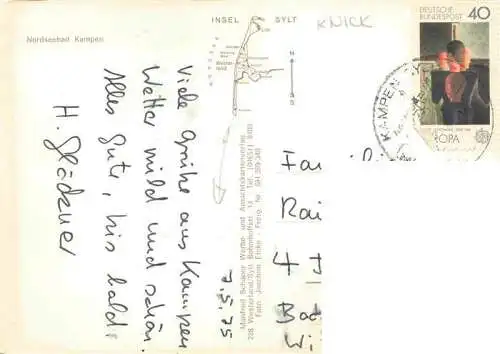 Nordseebad Kampen
INSEL SYLT
KNICK
DEUTSCHE
BUNDESPOST 40
KAMPEN
Viele Grüße aus Kampen
Wetter mild und schön.
Alles Gute, bis bald
H.
7.5.75
Manfred Schaper Werbe- und Ansichtskartenverlag
228 Westerland/Sylt
Foto Joachim Finke
Fa
Rai
4
Bad
Wi